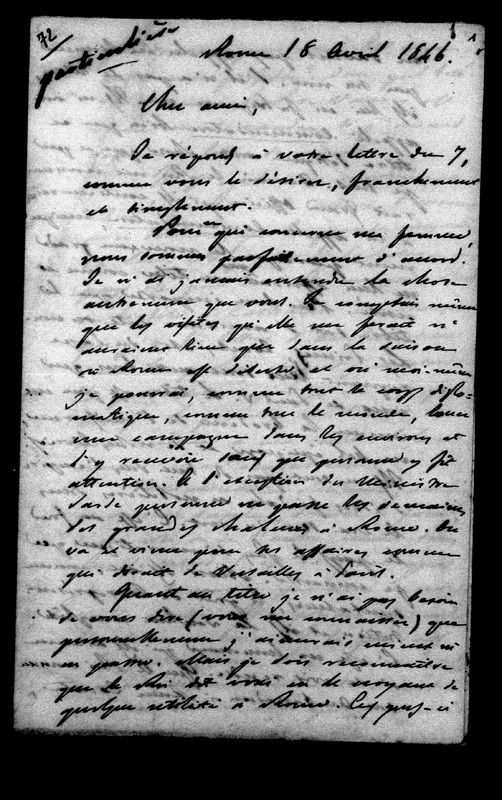 72
particulière
Rome 18 Avril 1846.
Cher ami,
Je réponds à votre lettre du 7,
comme vous le désirez, franchement
et simplement.
Pour ce qui concerne ma femme,
nous sommes parfaitement d'accord.
Je n'ai jamais entendu la chose
autrement que vous. Je comptais même
que les visites qu'elle me ferait n'
auraient lieu que dans la saison
où Rome est déserte, et où moi-même
je pourrai, comme tout le corps diplo-
matique, comme tout le monde, louer
une campagne dans les environs et
l'y recevoir sans que personne y fît
attention. A l'exception du Ministre
Sarde personne ne passe les semaines
des grandes chaleurs à Rome. On
va et vient pour ses affaires comme
qui dirait de Versailles à Paris.
Quant au titre je n'ai pas besoin
de vous dire (vous me connaissez) que
personnellement j'aimerais mieux m'
en passer. Mais je dois reconnaître
que le Roi dit vrai en le croyant de
quelque utilité à Rome. Ces gens-ci